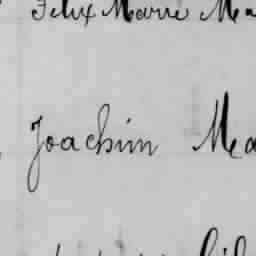 Felix Marie Ma
Joachim Ma